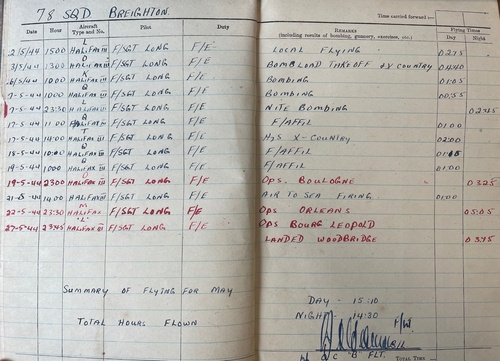 78 SQD BREIGHTON.
Time carried forward :—
Date Hour Aircraft Type and No. Pilot Duty REMARKS (including results of bombing, gunnery, exercises, etc.) Flying Times Day Night
2/5/44 1500 HALIFAX III F/SGT LONG F/E LOCAL FLYING
3/5/44 1300 HALIFAX III F/SGT LONG F/E BOMBLOAD TAKEOFF & X COUNTRY 04:40
6/5/44 1000 HALIFAX III F/SGT LONG F/E BOMBING 01:05
7-5-44 1000 HALIFAX III F/SGT LONG F/E BOMBING 00:55
7-5-44 23:30 HALIFAX III F/SGT LONG F/E NITE BOMBING 02:45
17-5-44 11:00 HALIFAX III F/SGT LONG F/E F/AFFIL 01:00
17-5-44 14:00 HALIFAX III F/SGT LONG F/E H2S X-COUNTRY 02:00
18-5-44 10:00 HALIFAX III F/SGT LONG F/E F/AFFIL
19-5-44 1000 HALIFAX III F/SGT LONG F/E F/AFFIL 01:00
19-5-44 2300 HALIFAX III F/SGT LONG F/E OPS. BOULOGNE 03:25
21-5-44 14:00 HALIFAX III F/SGT LONG F/E AIR TO SEA FIRING 01:00
22-5-44 23:30 HALIFAX F/SGT LONG F/E OPS ORLEANS 05:05
27-5-44 23:45 HALIFAX III F/SGT LONG F/E OPS BOURG LEOPOLD
"L"
LANDED WOODBRIDGE
SUMMARY OF FLYING FOR MAY
TOTAL HOURS FLOWN
DAY - 15:10
NIGHT - 14:30
O C B FLT.
TOTAL TIME